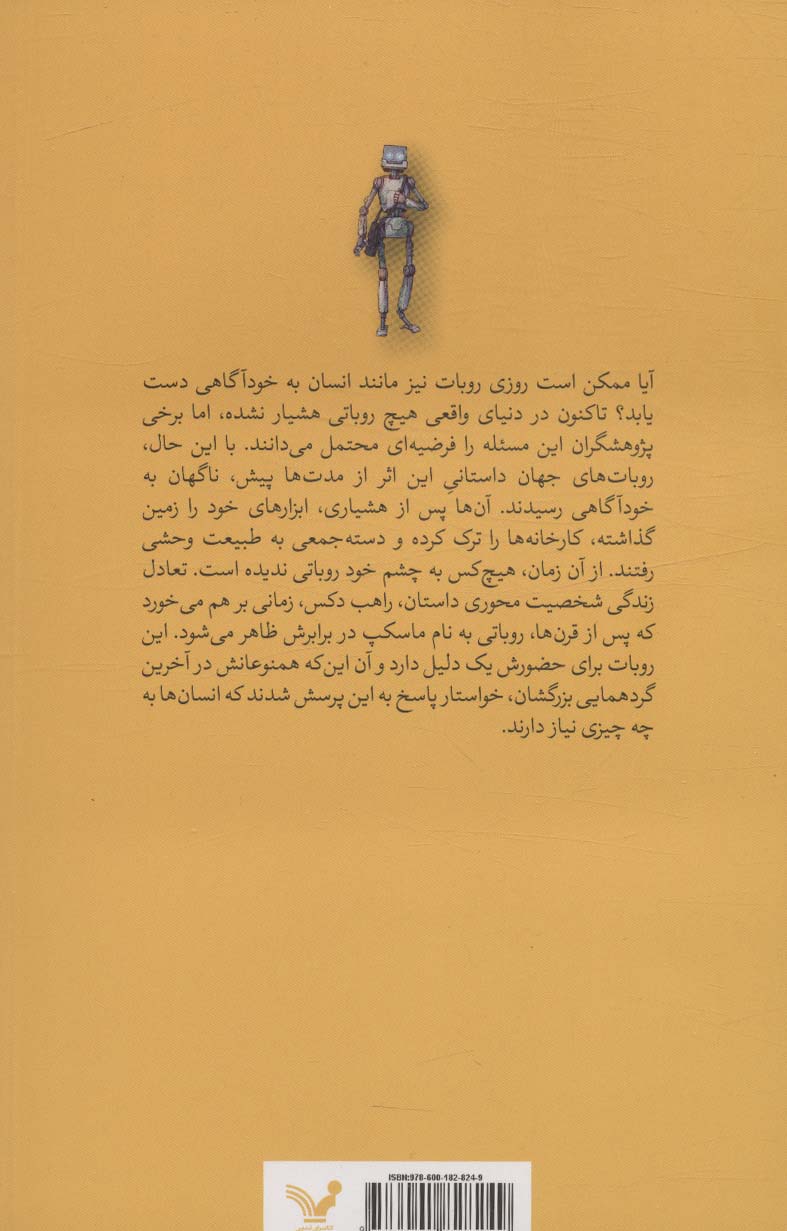 آیا ممکن است روزی روبات نیز مانند انسان به خودآگاهی دست
یابد؟ تاکنون در دنیای واقعی هیچ روباتی هشیار نشده، اما برخی
پژوهشگران این مسئله را فرضیه‌ای محتمل می‌دانند. با این حال،
روبات‌های جهان داستانیِ این اثر از مدت‌ها پیش، ناگهان به
خودآگاهی رسیدند. آن‌ها پس از هشیاری، ابزارهای خود را زمین
گذاشته، کارخانه‌ها را ترک کرده و دسته‌جمعی به طبیعت وحشی
رفتند. از آن زمان، هیچ‌کس به چشم خود روباتی ندیده است. تعادل
زندگی شخصیت محوری داستان، راهب دکس، زمانی بر هم می‌خورد
که پس از قرن‌ها، روباتی به نام ماسکپ در برابرش ظاهر می‌شود. این
روبات برای حضورش یک دلیل دارد و آن این‌که همنوعانش در آخرین
گردهمایی بزرگشان، خواستار پاسخ به این پرسش شدند که انسان‌ها به
چه چیزی نیاز دارند.
ISBN:978-600-182-824-9